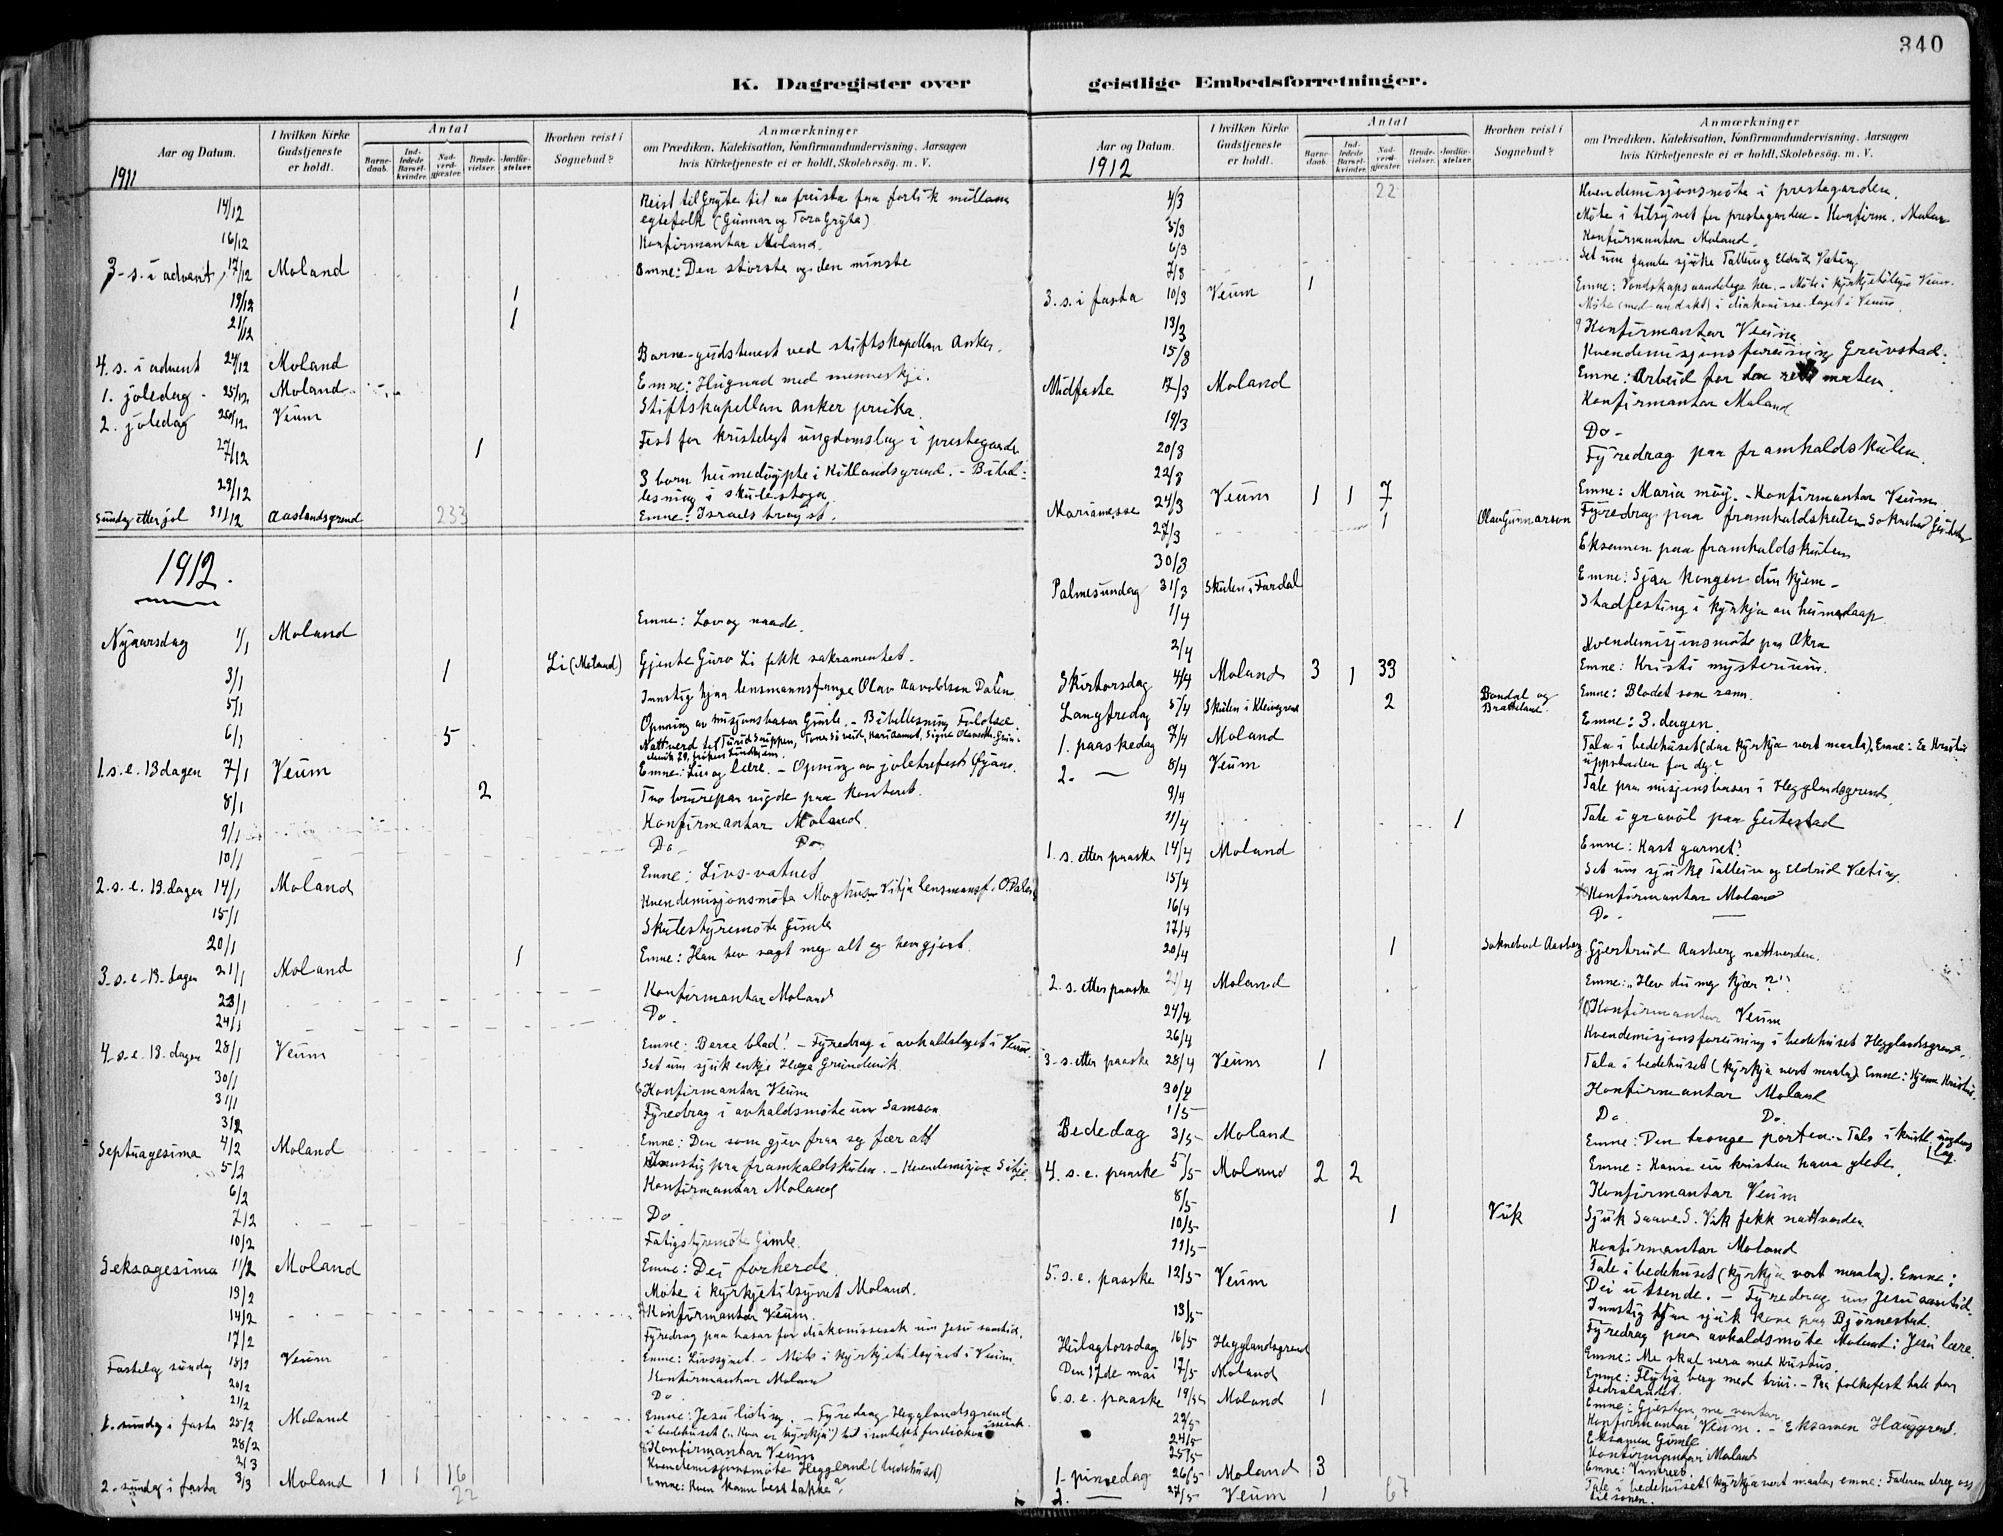 340
K. Dagregister over geistlige Embedsforretninger.
Aar og Datum. I hvilken Kirke Gudstjeneste er holdt. Antal Barnedaab. Indledede Barselkvinder. Nadverdgjæster. Brudevielser. Jordfæstelser. Hvorhen reist i Sognebud? Anmærkninger om Prædiken, Katekisation, Konfirmandundervisning, Aarsagen hvis Kirketjeneste ei er holdt, Skolebesøg. m. V.
1911
14/12 Reist til Grýte til aa freista faa forlik millom
egtefolk (Gunnar og Tora Grýte)
16/12 Konfirmantar Moland.
3-s. i advent 17/12 Moland Emne: Den største og den minste
19/12 1
21/12 1
4. s. i advent 24/12 Moland Barne-gudstenest ved stiftskapellan Anker.
1. joledag 25/12 Moland Emne: Hugnad med menneskji.
2. joledag 26/12 Veum Stiftskapellan Anker preika.
27/12 1 Fest for kristelegt ungdomslag i prestegarden
29/12 3 born heimedøypte i Killandsgrend. - Bibel-
lesning i skulestoga.
Sundag etter jol 31/12 Aaslandsgrend 233 Emne: Israels trøyst.
1912.
Nýaarsdag 1/1 Moland Emne: Lov og naade.
3/1 1 Li (Moland) Gjente Guro Li fekk sakramentet.
5/1 Innstig hjaa lensmannsfange Olav Aavoldsen Dalen
6/1 5 Opning av misjonsbasar Gimle. - Bibellesning
1. s. e. 13 dagen 7/1 Veum Emne: Liv og lære. - Opning av joletrefest
8/1 2 Tvo brurepar vigde paa kontoret.
9/1 Konfirmantar Moland.
10/1 Do Do
2. s. e. 13. dagen 14/1 Moland Emne: Livs-vatnet
15/1 Kvendemisjonsmøte Moghus. Vitja lensmansf. O. Dalen
20/1 Skulestýremøte Gimle
3-s. e. 13. dagen 21/1 Moland 1 Emne: Han hev sagt meg alt eg hev gjort.
23/1 Konfirmantar Moland
24/1 Do.
4-s. e. 13. dagen 28/1 Veum Emne: Berre blad! - Fýredrag i avhaldslaget i Veum
30/1 Set um sjuk enkje Hæge Grundevik
31/1 Konfirmantar Veum
3/2 Fýredrag i avhaldsmøte um Samson
Septuagesima 4/2 Moland Emne: Den som gjev fraa seg fær att
5/2 Innstig paa framhaldskulen. - Kvendemisjon
6/2 Konfirmantar Moland
7/2 Do
10/2 Fatigstýremøte Gimle.
Seksagesima 11/2 Moland Emne: Dei forherde.
13/2 Møte i kýrkjetilsýnet Moland.
14/2 Konfirmantar Veum.
17/2 Fýredrag paa basar for diakonissesak um Jesu samtid.
Fastelag sundag 18/2 Veum Emne: Livssýnet. - Møte i kýrkjetilsýnet i Veum
20/2 Konfirmantar Moland
21/2 Do
1. sundag i fasta 25/2 Moland Emne: Jesu liding. - Fýredrag Hegglandsgrend
i bedehuset ("Kva er kýrkja") til inntekt for diakonissesak
28/2 Konfirmantar Veum
2/3 Kvendemisjonsmøte Heggland (bedehuset)
2. sundag i fasta 3/3 Moland 1 1 16 Emne: Kven kann best takka?
22
Aar og Datum. I hvilken Kirke Gudstjeneste er holdt. Antal Barnedaab. Indledede Barselkvinder. Nadverdgjæster. Brudevielser. Jordfæstelser. Hvorhen reist i Sognebud? Anmærkninger om Prædiken, Katekisation, Konfirmandundervisning, Aarsagen hvis Kirketjeneste ei er holdt, Skolebesög. m. V.
1912
4/3 22 Kvendemisjonsmøte i prestegarden.
5/3 Møte i tilsýnet for prestegarden - Konfirm. Moland
6/3 Konfirmantar Moland.
7/3 Set um gamle sjuke Talleiv og Eldrid Væting.
3. s. i fasta 10/3 Veum 1 Emne: Vondskaps aandelege her. - Møte i kýrkjetilsýn Veum.
Møte (med andakt) i diakonisse-laget i Veum
13/3 Konfirmantar Veum
15/3 Kvendemisjonsforeining Greivstad.
Midfaste 17/3 Moland Emne: Arbeid for den rette maten.
19/3 Konfirmantar Moland
20/3 Do-
22/3 Fýredrag paa framhaldskulen.
Mariamesse 24/3 Veum 1 1 7 Emne: Maria møý. - Konfirmantar Veum
27/3 1 Olav Gunnarson Fýredrag paa framhaldskulen. Soknebud
30/3 Eksamen paa framhaldskulen
Palmesundag 31/3 Skulen i Fardal Emne: Sjaa kongen din kjem -
1/4 Stadfesting i kýrkja av heimedaap
2/4 Kvendemisjonsmøte paa Økra
Skirtorsdag 4/4 Moland 3 1 33 Emne: Kristi mysterium.
Langfredag 5/4 Skulen i Kleivgrend 2 Bandal og Bratteland. Emne: Blodet som rann.
1. paaskedag 7/4 Moland Emne: 3. dagen.
2. — 8/4 Veum Tala i bedehuset (daa kýrkja vert maala). Emne: Er Kristus
uppstaden for deg?
9/4 Tale paa misjonsbasar i Hegglandsgrend
11/4 1 Tale i gravøl paa Geitestad
1. s. etter paaske 14/4 Moland Emne: Kast garnet!
15/4 Set um sjuke Talleiv og Eldrid Væting.
16/4 Konfirmantar Moland
17/4 Do. —
20/4 1 Soknebud Aasberg Gjertrud Aasberg nattverden.
2. s. etter paaske 21/4 Moland Emne: "Hev du meg kjær?"
24/4 Konfirmantar Veum
26/4 Kvendemisjonsforeining i bedehuset Hegglandsgrend.
3-s. etter paaske 28/4 Veum 1 Tala i bedehuset (kýrkja vert maala). Emne: Kjenne Kristus.
30/4 Konfirmantar Moland
1/5 Do Do.
Bededag 3/5 Moland Emne: Den tronge porten. - Tale i kristl. ungdoms lag
4. s. e. paaske 5/5 Moland 2 2 Emne: Kann ein kristen hava glede.
8/5 Konfirmantar Veum
10/5 1 Vik Sjuk Saave S. Vik fekk nattverden
11/5 Konfirmantar Moland
5. s. e. paaske 12/5 Veum Tale i bedehuset (kýrkja vert maala). Emne:
Dei utsende. - Fýredrag um Jesu samtid.
13/5 Innstig hjaa sjuk kone paa Bjørnestad.
Fýredrag paa avhaldsmøte Moland: Jesu lære.
Heilagtorsdag 16/5 Hegglandsgrend Emne: Me skal vera med Kristus.
Den 17de mai 17/5 Moland Emne: Flýtja berg med trui. - Paa folkefest tale for
fedralandet.
6. s. e. paaske 19/5 Moland 1 Emne: Gjesten me ventar
22/5 Konfirmantar Veum. - Eksamen Hauggrend.
24/5 Eksamen Gimle
25/5 Konfirmantar Moland
1. pinsedag 26/5 Moland 3 Emne:
2. — 27/5 Veum 1 67 Tale i bedehuset (kýrkja vert maala, emne: Faderen dreg oss
til sonen.